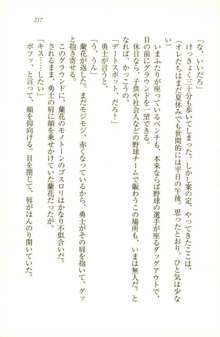 217
「な、いいだろ」
けっきょく、三十分も歩いただろうか。やってきたここは、
オレたちはまだ夏休みでも世間的には平日の午後。思ったとおり、ひと気は少
なかった。しかし案の定、
いまふたりが座っているベンチも、本来ならば野球の選手が座るダッグアウトで、
休日なら、子供や社会人などの野球チームで賑わうこの場所も、いまは無人で広
大なグラウンドを一望できる。
「デートスポット、だろ？」
勇士が言うと、
「う、うん」
蘭花がまたモジモジ、赤くなりながらうなずく。勇士がその肩を抱いて、グッ
と抱き寄せる。
このグラウンドに、蘭花のモノトーンのゴスロリはかなり不似合いだった。
そのまま、勇士の肩に顔を乗せかけていた蘭花だが、
「キス……したい」
ボソッ、つぶやき、顔を仰向ける。目を閉じて、唇がほんのり開いていた。